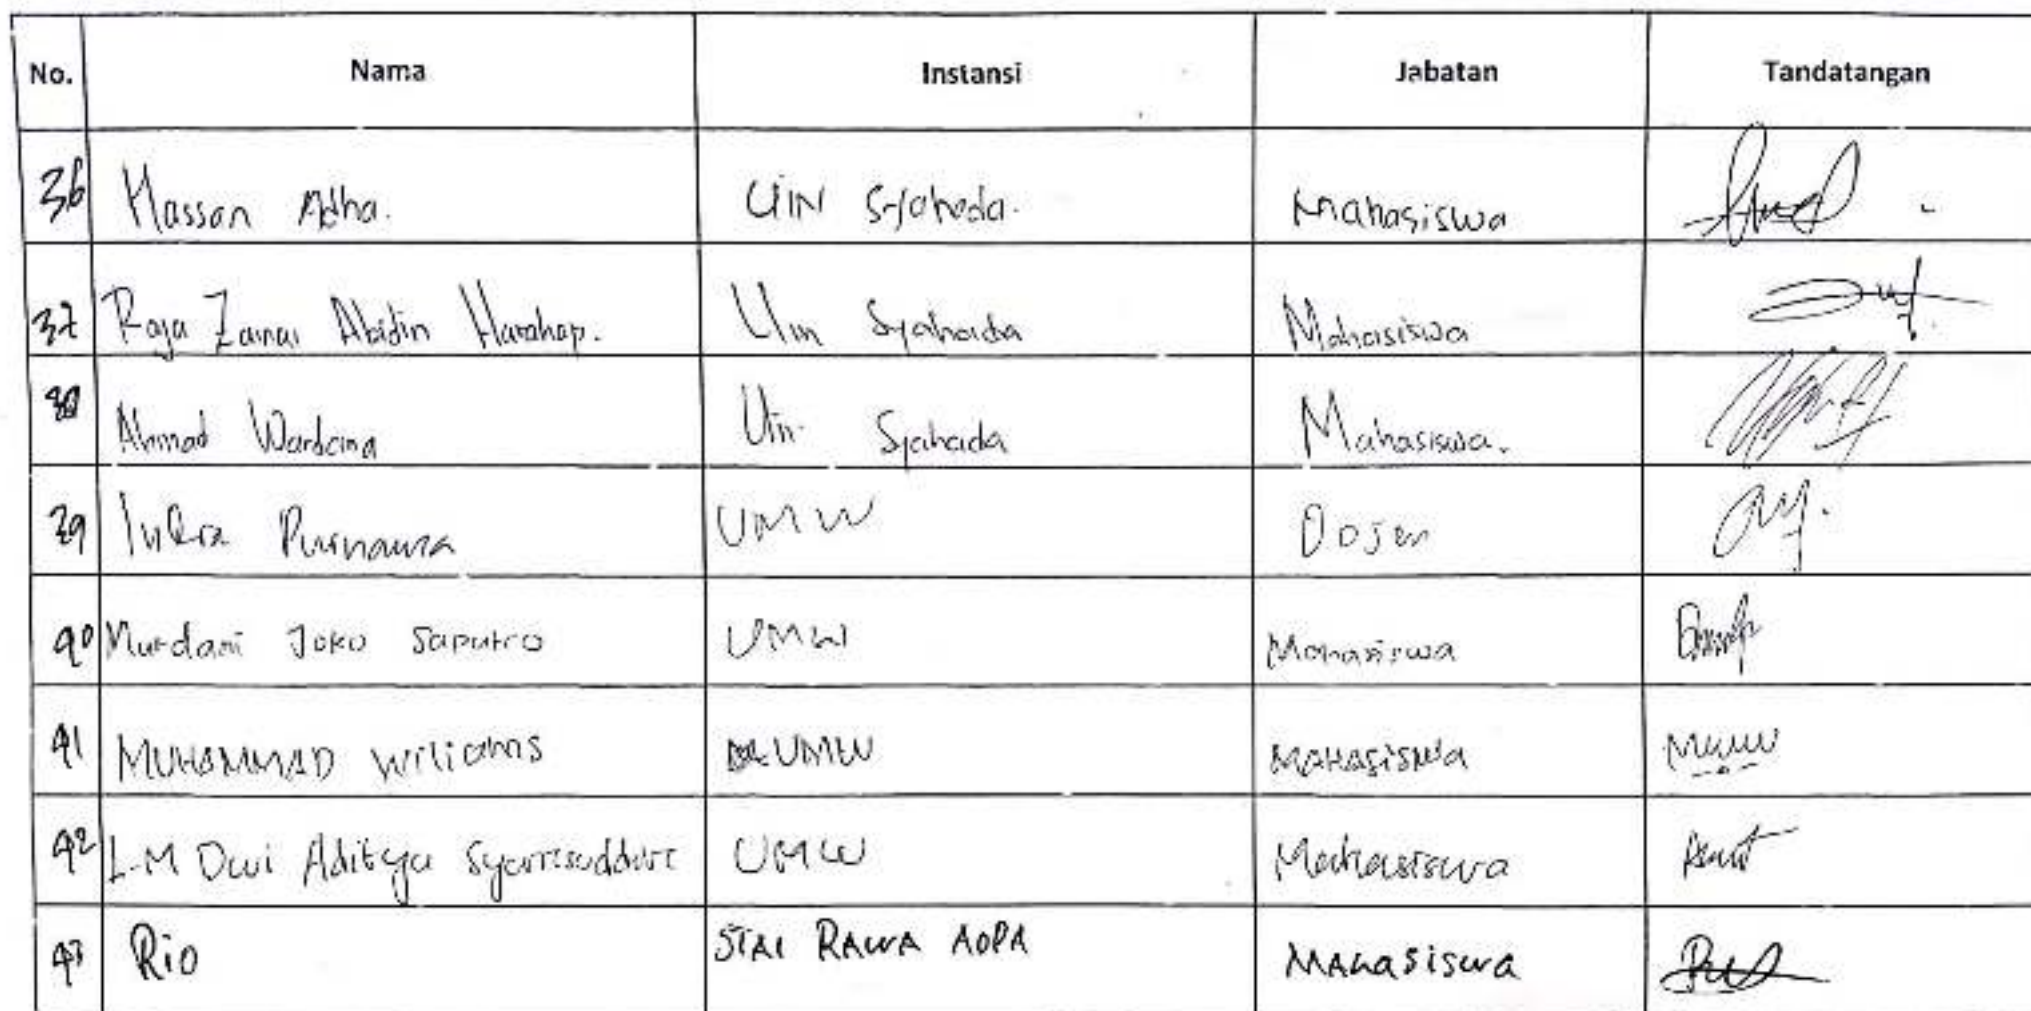 No. Nama Instansi Jabatan Tandatangan
36 Hassan Adha. UIN Syahada. Mahasiswa
37 Raja Zainal Abidin Harahap. Uin Syahada Mahasiswa
38 Ahmad Wardana Uin Syahada Mahasiswa.
39 Indra Purnawa UMW Dosen
40 Murdani Joko Saputro UMW Mahasiswa
41 MUHAMMAD Wiliams UMW MAHASISWA
42 L.M Dwi Aditya UMW Mahasiswa
43 Rio STAI RAWA AOPA MAHASiswa